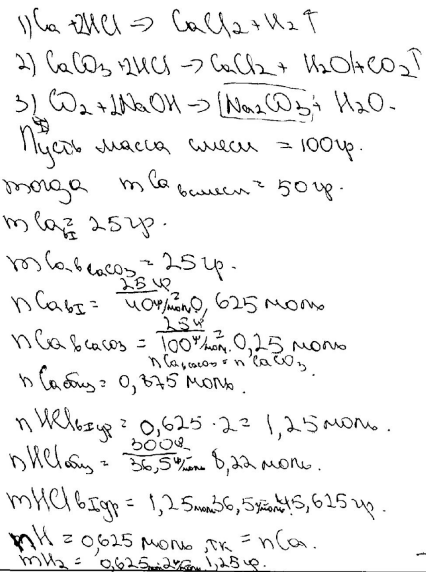 1) Ca + 2HCl → CaCl2 + H2↑
2) CaCO3 + 2HCl → CaCl2 + H2O + CO2↑
3) CO2 + 2NaOH → Na2CO3 + H2O.
Пусть масса смеси = 100 гр.
тогда mCa в смеси = 50 гр.
mCa в I = 25 гр.
mCa в CaCO3 = 25 гр.
nCa в I = 25 гр / 40 г/моль = 0,625 моль
nCa в CaCO3 = 25 г / 100 г/моль = 0,25 моль
nCa в CaCO3 = nCaCO3.
nCa общ = 0,875 моль.
nHCl в I ур = 0,625 · 2 = 1,25 моль.
nHCl общ = 300 г / 36,5 г/моль = 8,22 моль.
mHCl в I ур = 1,25 моль · 36,5 г/моль = 45,625 гр.
nH = 0,625 моль, тк = nCa.
mH2 = 0,625 моль · 2 г/моль = 1,25 гр.